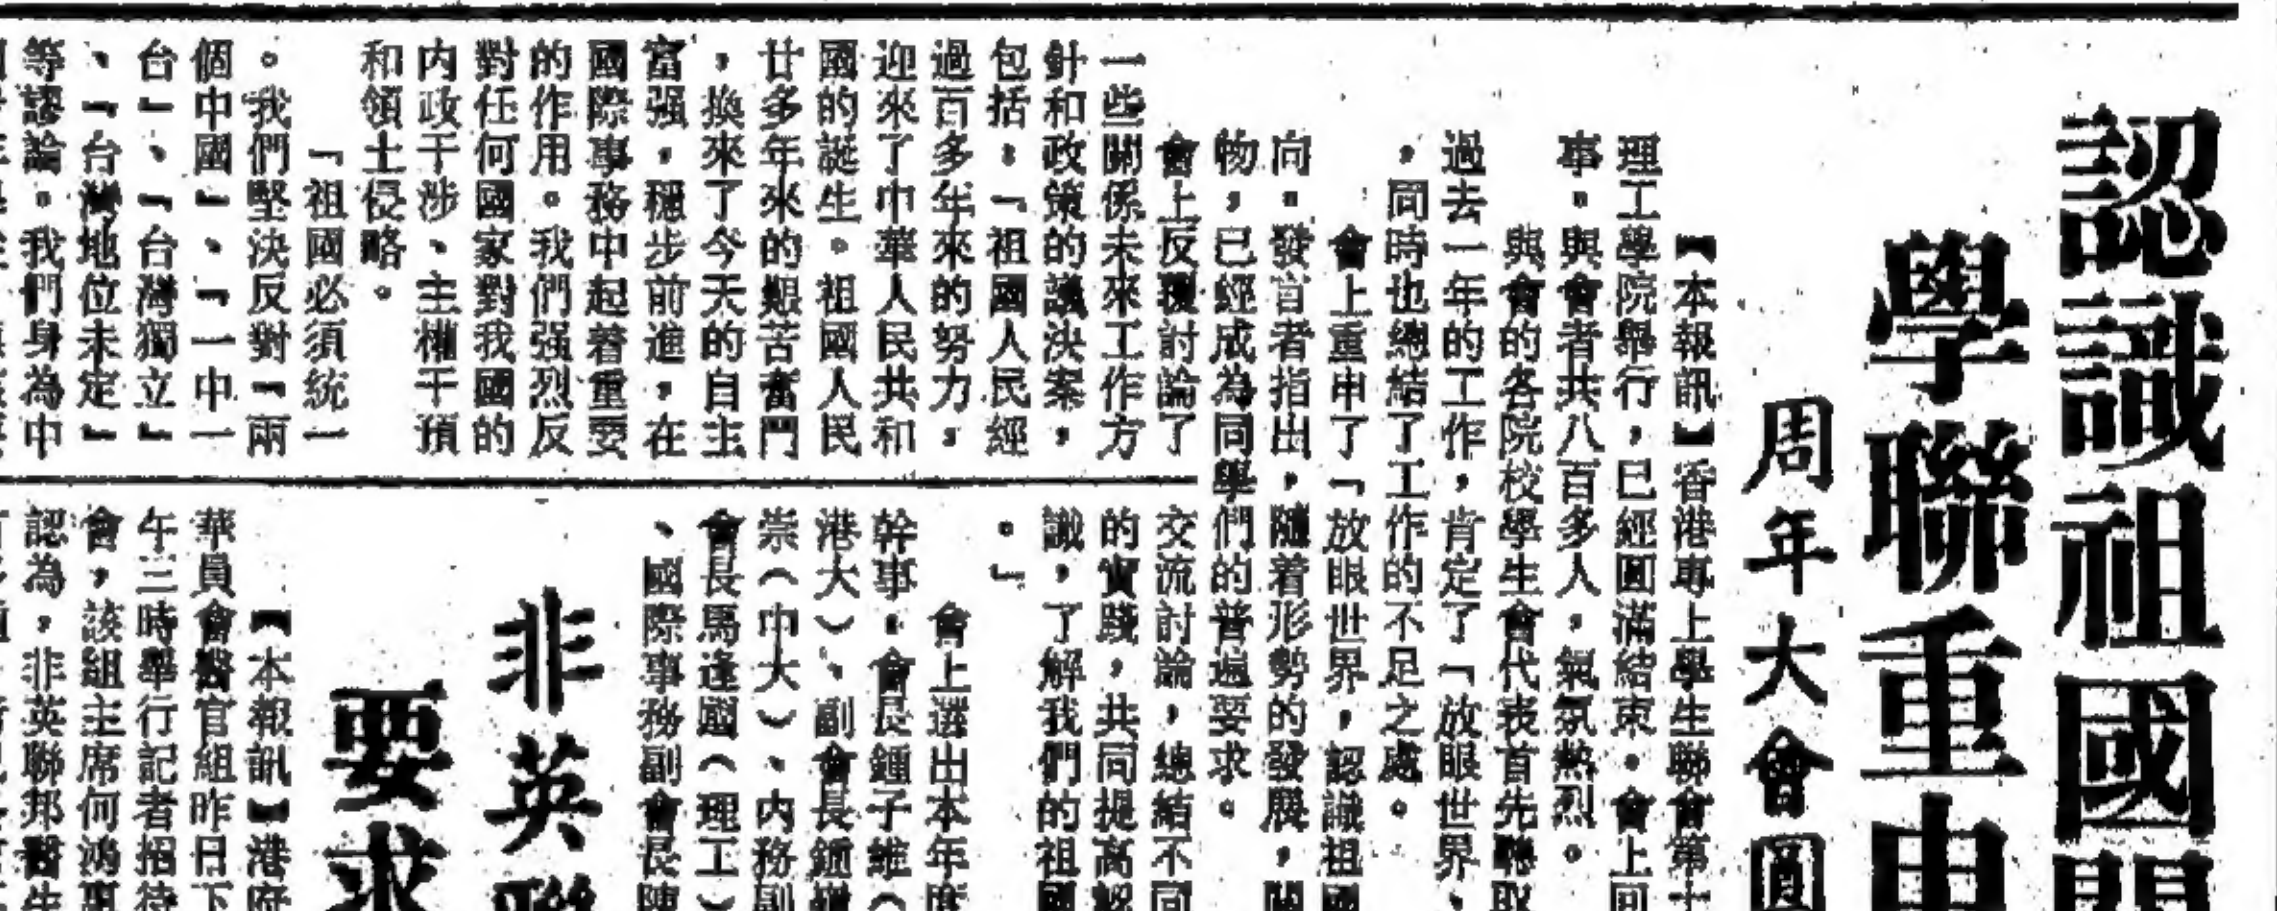 認識祖國
學聯重申
周年大會圓
【本報訊】香港專上學生聯會第十
理工學院舉行，已經圓滿結束。會上回
事。與會者共八百多人，氣氛熱烈。
與會的各院校學生會代表首先聽取
過去一年的工作，肯定了「放眼世界、
，同時也總結了工作的不足之處。
會上重申了「放眼世界，認識祖國
向。發言者指出，隨着形勢的發展，關
物，已經成為同學們的普遍要求。
會上反覆討論了
一些關係未來工作方
針和政策的議決案，
包括：「祖國人民經
過百多年來的努力，
迎來了中華人民共和
國的誕生。祖國人民
廿多年來的艱苦奮鬥
，換來了今天的自主
富强，穩步前進，在
國際事務中起着重要
的作用。我們强烈反
對任何國家對我國的
內政干涉、主權干預
和領土侵略。
「祖國必須統一
。我們堅決反對「兩
個中國」、「一中一
台」、「台灣獨立」
、「台灣地位未定」
等謬論。我們身為中
交流討論，總結不同
的實踐，共同提高認
識，了解我們的祖國
。」
會上選出本年度
幹事。會長鍾子維（
港大）、副會長鍾
崇（中大）、內務副
會長馬逢國（理工）
、國際事務副會長陳
非英聯
要求
【本報訊】港府
華員會醫官組昨日下
午三時舉行記者招待
會，該組主席何鴻
認為，非英聯邦醫生